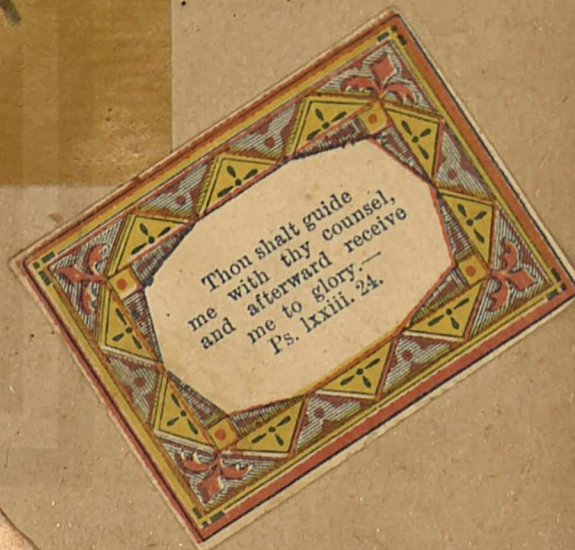 Thou shalt guide
me with thy counsel,
and afterward receive
me to glory.—
Ps. lxxiii. 24.